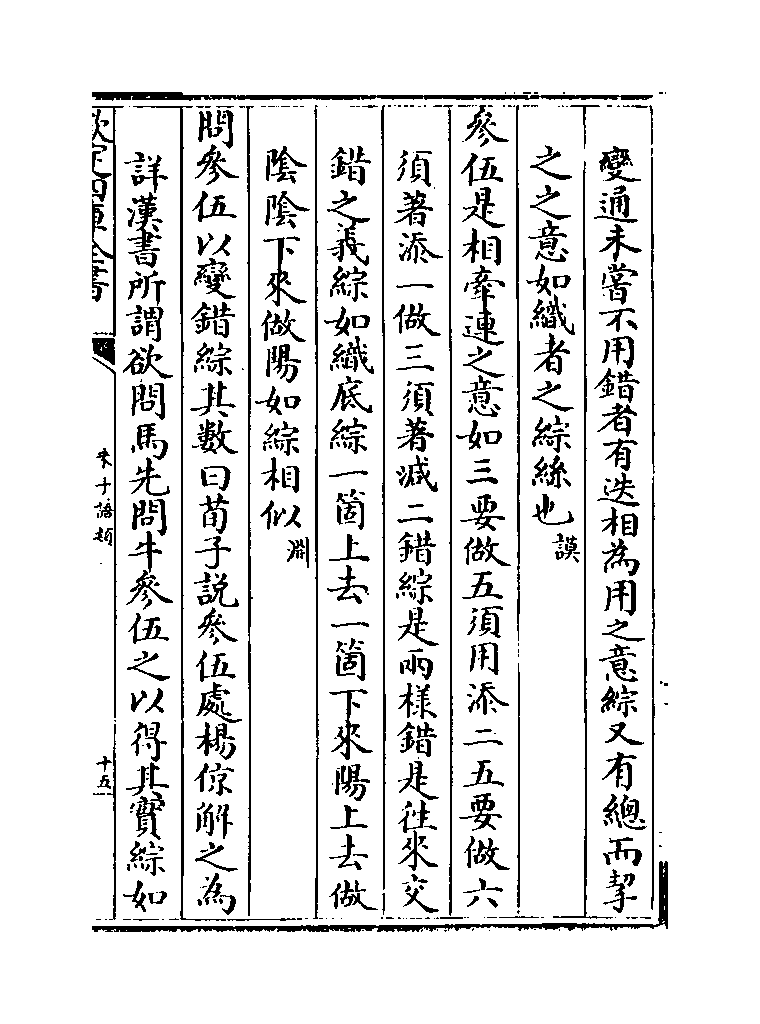 變通未嘗不用錯者有迭相為用之意綜又有總而挈
之之意如織者之綜絲也 謨
參伍是相牽連之意如三要做五須用添二五要做六
須著添一做三須著減二錯綜是兩樣錯是往來交
錯之義綜如織底綜一箇上去一箇下來陽上去做
陰陰下來做陽如綜相似 淵
問參伍以變錯綜其數曰荀子說參伍處楊倞解之為
詳漢書所謂欲問馬先問牛參伍之以得其實綜如
欽定四庫全書
朱子語類
十五